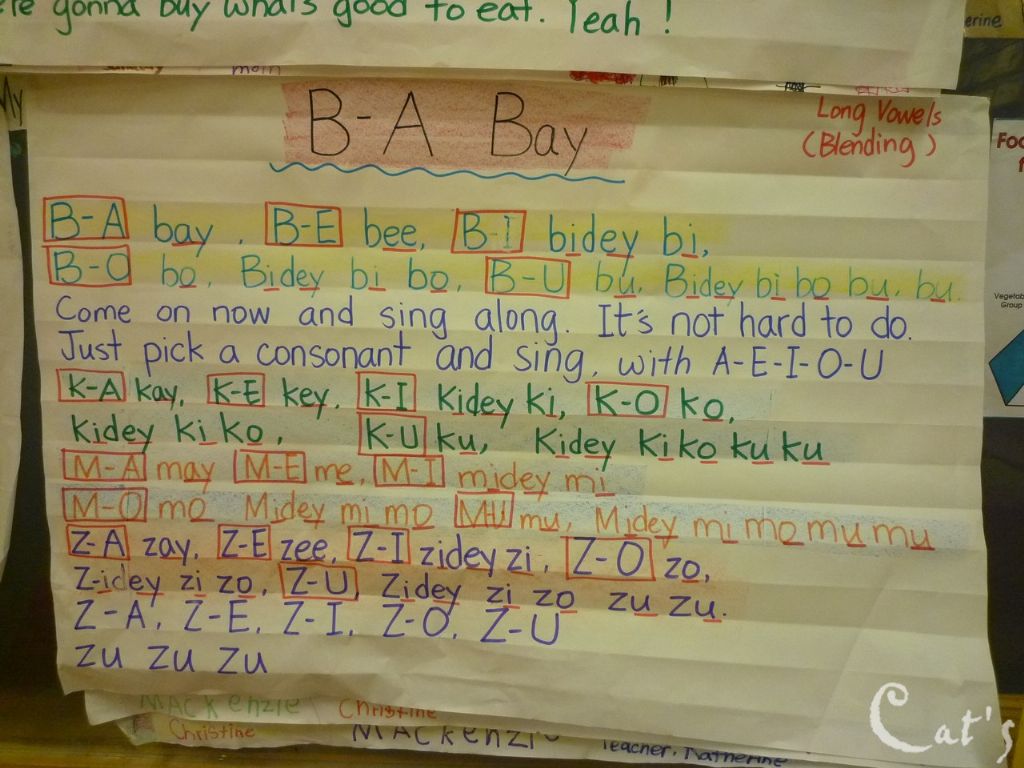 gonna buy what's good to eat. Yeah!
erine
My
moth
B-A Bay
Long Vowels
(Blending)
B-A bay, B-E bee, B-I bidey bi,
B-O bo, Bidey bi bo, B-U bu, Bidey bi bo bu, bu.
Come on now and sing along. It's not hard to do.
Just pick a consonant and sing, with A-E-I-O-U
K-A kay, K-E key, K-I Kidey ki, K-O ko,
Kidey ki ko, K-U ku, Kidey Ki ko ku ku
M-A may M-E me, M-I midey mi
M-O mo Midey mi mo M-U mu, Midey mi mo mu mu
Z-A zay, Z-E zee, Z-I zidey zi, Z-O zo,
Z-idey zi zo, Z-U, Zidey zi zo zu zu.
Z-A, Z-E, Z-I, Z-O, Z-U
zu zu zu
Vegetab
Group
MACKenzie Christine
Christine MACKenzi
Teacher, Katherine
Cat's